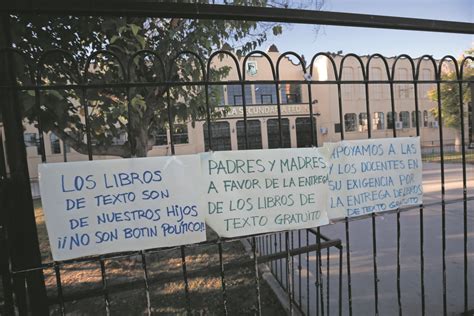 LOS LIBROS
DE TEXTO SON
DE NUESTROS HIJOS
¡¡NO SON BOTIN POLITICO!!
PADRES Y MADRES
A FAVOR DE LA ENTREGA
DE LOS LIBROS DE
TEXTO GRATUITO
APOYAMOS A LAS
Y LOS DOCENTES EN
SU EXIGENCIA POR
LA ENTREGA DE LIBROS
DE TEXTO GRATUITO